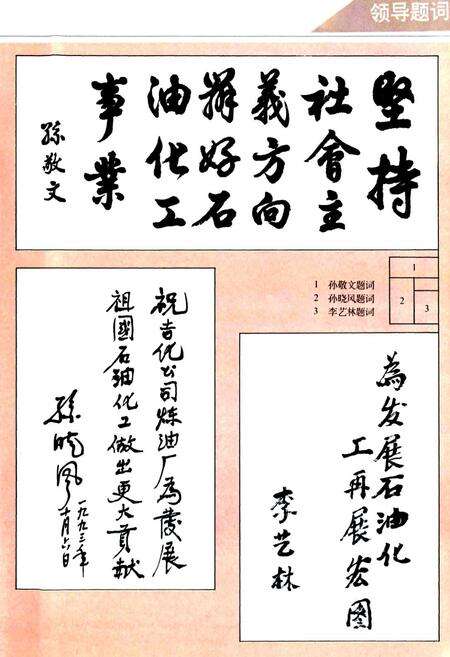 领导题词
坚持
社會主
義方向
辦好石
油化工
事業
孫敬文
1 孙敬文题词
2 孙晓风题词
3 李艺林题词
1
2
3
祝吉化公司炼油厂為發展
祖國石油化工做出更大貢献
孫晓风
一九九三年
十月六日
為发展石油化
工再展宏图
李艺林